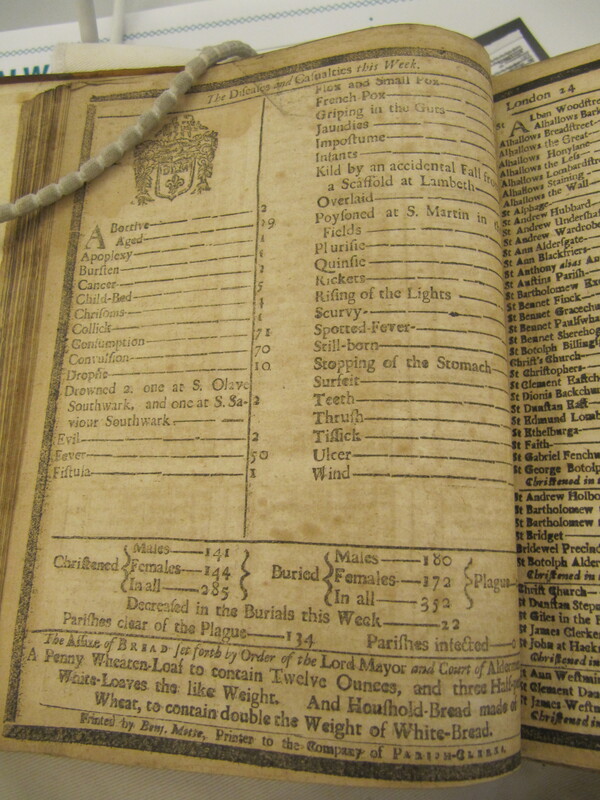 The Diseases and Casualties this Week.
Abortive 2
Aged 29
Apoplexy 1
Bursten 1
Cancer 2
Child-Bed 5
Chrisoms 4
Collick 1
Consumption 71
Convulsion 70
Dropsie 10
Drowned 2. one at S. Olave
Southwark, and one at S. Sa- 2
viour Southwark
Evil 2
Fever 50
Fistula 1
Flox and Small Pox
French Pox
Griping in the Guts
Jaundies
Impostume
Infants
Kild by an accidental Fall
a Scaffold at Lambeth
Overlaid
Poysoned at S. Martin in
Fields
Plurisie
Quinsie
Rickets
Rising of the Lights
Scurvy
Spotted-Fever
Still-born
Stopping of the Stomach
Surfeit
Teeth
Thrush
Tissick
Ulcer
Wind
Christened Males 141 Females 144 In all 285
Buried Males 180 Females 172 In all 352 Plague
Decreased in the Burials this Week 22
Parishes clear of the Plague 134 Parishes infected 0
The Assize of BREAD set forth by Order of the Lord Mayor and Court of
A Penny Wheaten-Loaf to contain Twelve Ounces, and three
White-Loaves the like Weight. And Houshold-Bread made of
Wheat, to contain double the Weight of White-Bread.
Printed by Benj. Motte, Printer to the Company of PARISH-CLERKS.
London 24
St Alban Woodstr
Alhallows Bark
Alhallows Breadstreet
Alhallows the Great
Alhallows Honylane
Alhallows the Less
Alhallows Lombardstr
Alhallows Staining
Alhallows the Wall
St Alphage
St Andrew Hubbard
St Andrew Undersha
St Andrew Wardrobe
St Ann Aldersgate
St Ann Blackfriers
St Anthony alias
St Austins Parish
St Bartholomew
St Bennet Finck
St Bennet Gracechu
St Bennet Paulswha
St Bennet Sherehog
St Botolph Billingsg
Christ's Church
St Christophers
St Clement Eastch
St Dionis Backchu
St Dunstan East
St Edmund Lomb
St Ethelburga
St Faith
St Gabriel Fench
St George Botolp
Christened in
St Andrew Holbo
St Bartholomew
St Bartholomew
St Bridget
Bridewel Precin
St Botolph Alder
Christened in
Christ Church
St Dunstan Step
St Giles in the
St James Clerke
St John at Hack
Christened in
St Ann Westmin
St Clement Dan
St James Westm
Christened in